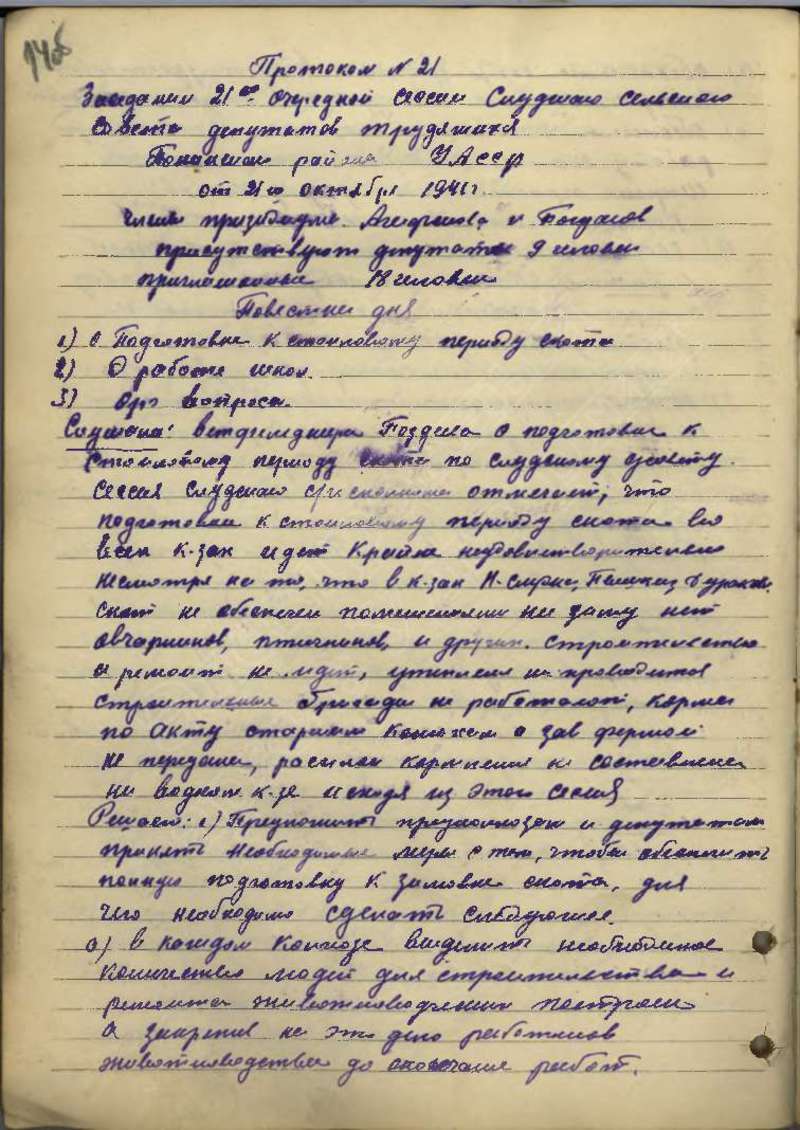 146
Протокол N 21
Заседания 21ой очередной сессии Слудского сельского
Совета депутатов трудящихся
района УАССР
от 21го октября 1941г.
члены президиума Агафонова и Богданов
присутствуют депутатов 9 человек
приглашенные 18 человек
Повестка дня
1) О Подготовке к стойловому периоду скота
2) О работе школ.
3) Орг вопроса.
Слушали: ветфельдшера о подготовке к
стойловому периоду скота по Слудскому с/совету.
Сессия Слудского отмечает, что
подготовка к стойловому периоду скота во
всех к-зах идет крайне неудовлетворительно
несмотря на то, что в к-зах
скот не обеспечен помещениями на зиму нет
овчарников, птичников, и других. строительство
и ремонт не идет, утепления не проводится
строительные бригады не работают, корма
по акту старшим конюхам и зав фермой
не переданы, рациона кормления не составлено
ни водном к-зе исходя из этого сессия
Решает: 1) Предложить предколхозам и депутатам
принять необходимые меры с тем, чтобы обеспечить
полную подготовку к зимовке скота, для
чего необходимо сделать следующее.
а) в каждом колхозе выделить необходимое
количество людей для строительства и
ремонта животноводческих построек
и закрепив на это дело работников
животноводства до окончания работ.